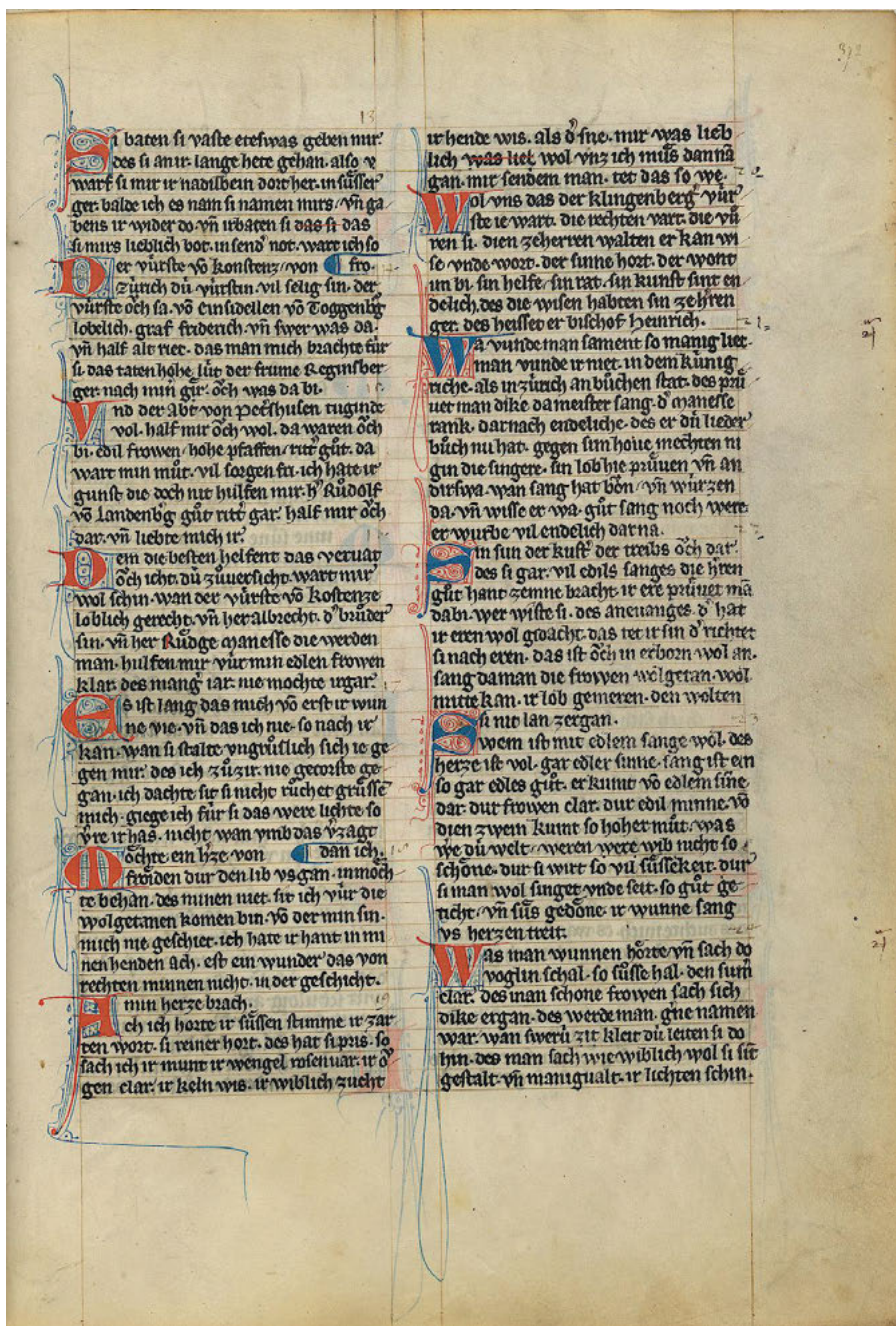 372
13
Si baten si vaste eteſwas geben mir.
des si an ir. lange hete gehan. also v̾
warf si mir ir nadilbein dort her. in sůſſer
ger. balde ich es nam si namen mirs. vn̄ ga
bens ir wider do. vn̄ irbaten si das si das
si mirs lieblich bot. in send̾ not. wart ich so
Der vúrſte vō Konſtenz. von fro.
Zúrich dú vúrſtin. vil selig sin. der
vúrſte ŏch sa. vō einsidellen. vō Toggenb̾g
lobelich. graf friderich. vn̄ swer was da.
vn̄ half alt riet. das man mich brachte fúr
si das taten hohe lút der frume Reginsber
ger. nach min̄ gir. ŏch was da bi.
Vnd der abt von Peterſhusen tuginde
vol. half mir ŏch wol. da waren ŏch
bi. edil frowen. hohe pfaffen. ritt̾ gůt. da
wart min můt. vil sorgen fri. ich hate ir
gunſt die doch nit hulfen mir. h̾ Růdolf
vō Landenb̾g gůt ritt̾ gar. half mir ŏch
dar. vn̄ liebte mich ir.
Dem die beſten helfent das veruat
ŏch icht. dú zůverſicht. wart mir
wol schin. wan der vúrſte vō Koſtenze
loblich gerecht. vn̄ her albrecht. d̾ brůder
sin. vn̄ her Rúdge Maneſſe die werden
man. hulfen mir vúr min edlen frowen
klar. des mang̾ iar. nie mochte irgar.
Es iſt lang das mich vō erſt ir wun
ne vie. vn̄ das ich nie. so nach ir
kan. wan si ſtalte vngrůſlich sich ie ge
gen mir. des ich zů zir. nie getorſte ge
gan. ich dachte sit si nicht růchet grůſſē
mich. giege ich fúr si das were lichte so
v̾re ir has. nicht wan vmb das v̾zagt
Mŏchte ein h̾ze von dan ich.
frŏiden dur den lib vsgan. in mŏch
te behan. des minen niet. sit ich vúr die
wolgetanen komen bin. vō der min sin.
mich nie geschiet. ich hate ir hant in mi
nen henden ach. eſt ein wunder das von
rechten minnen nicht. in der geschicht.
min herze brach.
Ach ich horte ir sůſſen ſtimme ir zar
ten wort. si reiner hort. des hat si pris. so
sach ich ir munt ir wengel rosenuar. ir ŏ
gen clar. ir keln wis. ir wiblich zucht
ir hende wis. als d̾ sne. mir was lieb
lich was liek wol vnz ich můs dannā
gan. mir sendem man. tet das so we.
Wol vns das der Klingenberg̾ vúr
ſte ie wart. die rechten vart. die vů
ren si. dien ze herren walten er kan wi
se vnde wort. der sinne hort. der wont
im bi. sin helfe. sin rat. sin kunſt sint en
delich. des die wisen habten sin ze h̾ren
ger. des heiſſet er bischof Heinrich.
Wa vunde man sament so manig liet.
man vunde ir niet. in dem kúnig
riche. als in zúrich an bůchen ſtat. des prů
uet man dike da meiſter sang. d̾ maneſſe
rank. dar nach endeliche. des er dú lieder
bůch nu hat. gegen sim houe mechten ni
gin die singere. sin lob hie průuen vn̄ an
dirſwa. wan sang hat bŏn. vn̄ wúrzen
da. vn̄ wiſſe er wa. gůt sang noch were
er wurbe vil endelich dar na.
Sin sun der kuſt̾ der treibs ŏch dar.
des si gar. vil edils sanges die h̾ren
gůt hant zemne bracht. ir ere průuet mā
da bi. wer wiſte si. des aneuanges. d̾ hat
ir eren wol gdacht. das tet ir sin d̾ richtet
si nach eren. das iſt ŏch in erborn wol an.
sang da man die frowen wolgetan. wol
mitte kan. ir lob gemeren. den wolten
si nit lan zergan.
Swem iſt mit edlem sange wol. des
herze iſt vol. gar edler sinne. sang iſt ein
so gar edles gůt. er kumt vō edlem sine
dar. dur frowen clar. dur edil minne. vō
dien zwein kumt so hoher můt. was
we dú welt. weren were wib nicht so
schŏne. dur si wirt so vil sůſſekeit. dur
si man wol singet vnde seit. so gůt ge
ticht. vn̄ sůs gedŏne. ir wunne sang
vs herzen treit.
Was man wunnen hŏrte vn̄ sach do
voglin schal. so sůſſe hal. den sum̄
clar. des man schone frowen sach sich
dike ergan. des werde man. g̾ne namen
war. wan swerú zit kleit dú leiten si do
hin. des man sach wie wiblich wol si sint
geſtalt. vn̄ manigualt. ir lichten schin.